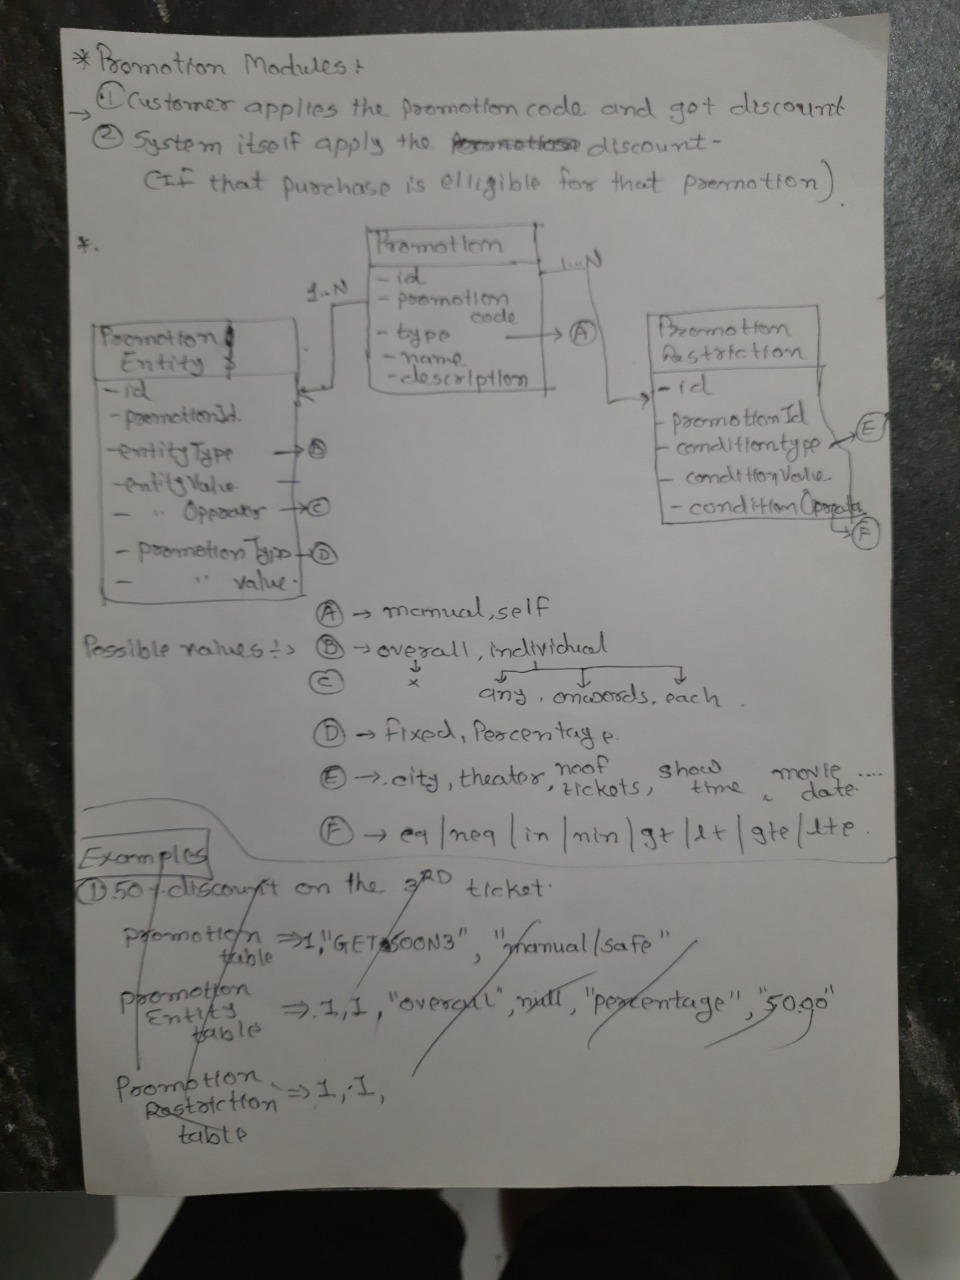 * Promotion Modules :
→ ① Customer applies the promotion code and got discount
② System itself apply the promotion discount -
(If that purchase is elligible for that promotion).
*.
Promotion
- id
- promotion
code
- type → Ⓐ
- name
- description
1..N
1..N
Promotion
Entity
- id
- promotionId.
- entityType →
- entityValue
- " Opperator → Ⓒ
- promotionType → Ⓓ
- " value.
Promotion
Restriction
- id
- promotionId
- conditiontype → Ⓔ
- conditionValue
- conditionOperator → Ⓕ
Possible values :→
Ⓐ → manual, self
Ⓑ → overall, individual
Ⓒ x any, onwords, each.
Ⓓ → Fixed, Percentage.
Ⓔ → city, theator, no of tickets, show time, movie date ....
Ⓕ → eq | neq | in | nin | gt | lt | gte | lte.
Examples
① 50% discount on the 3RD ticket.
promotion table ⇒ 1, "GETSOON3", "manual/safe"
promotion Entity table ⇒ 1, 1, "overall", null, "percentage", "50.00"
Promotion Restriction table ⇒ 1, 1,